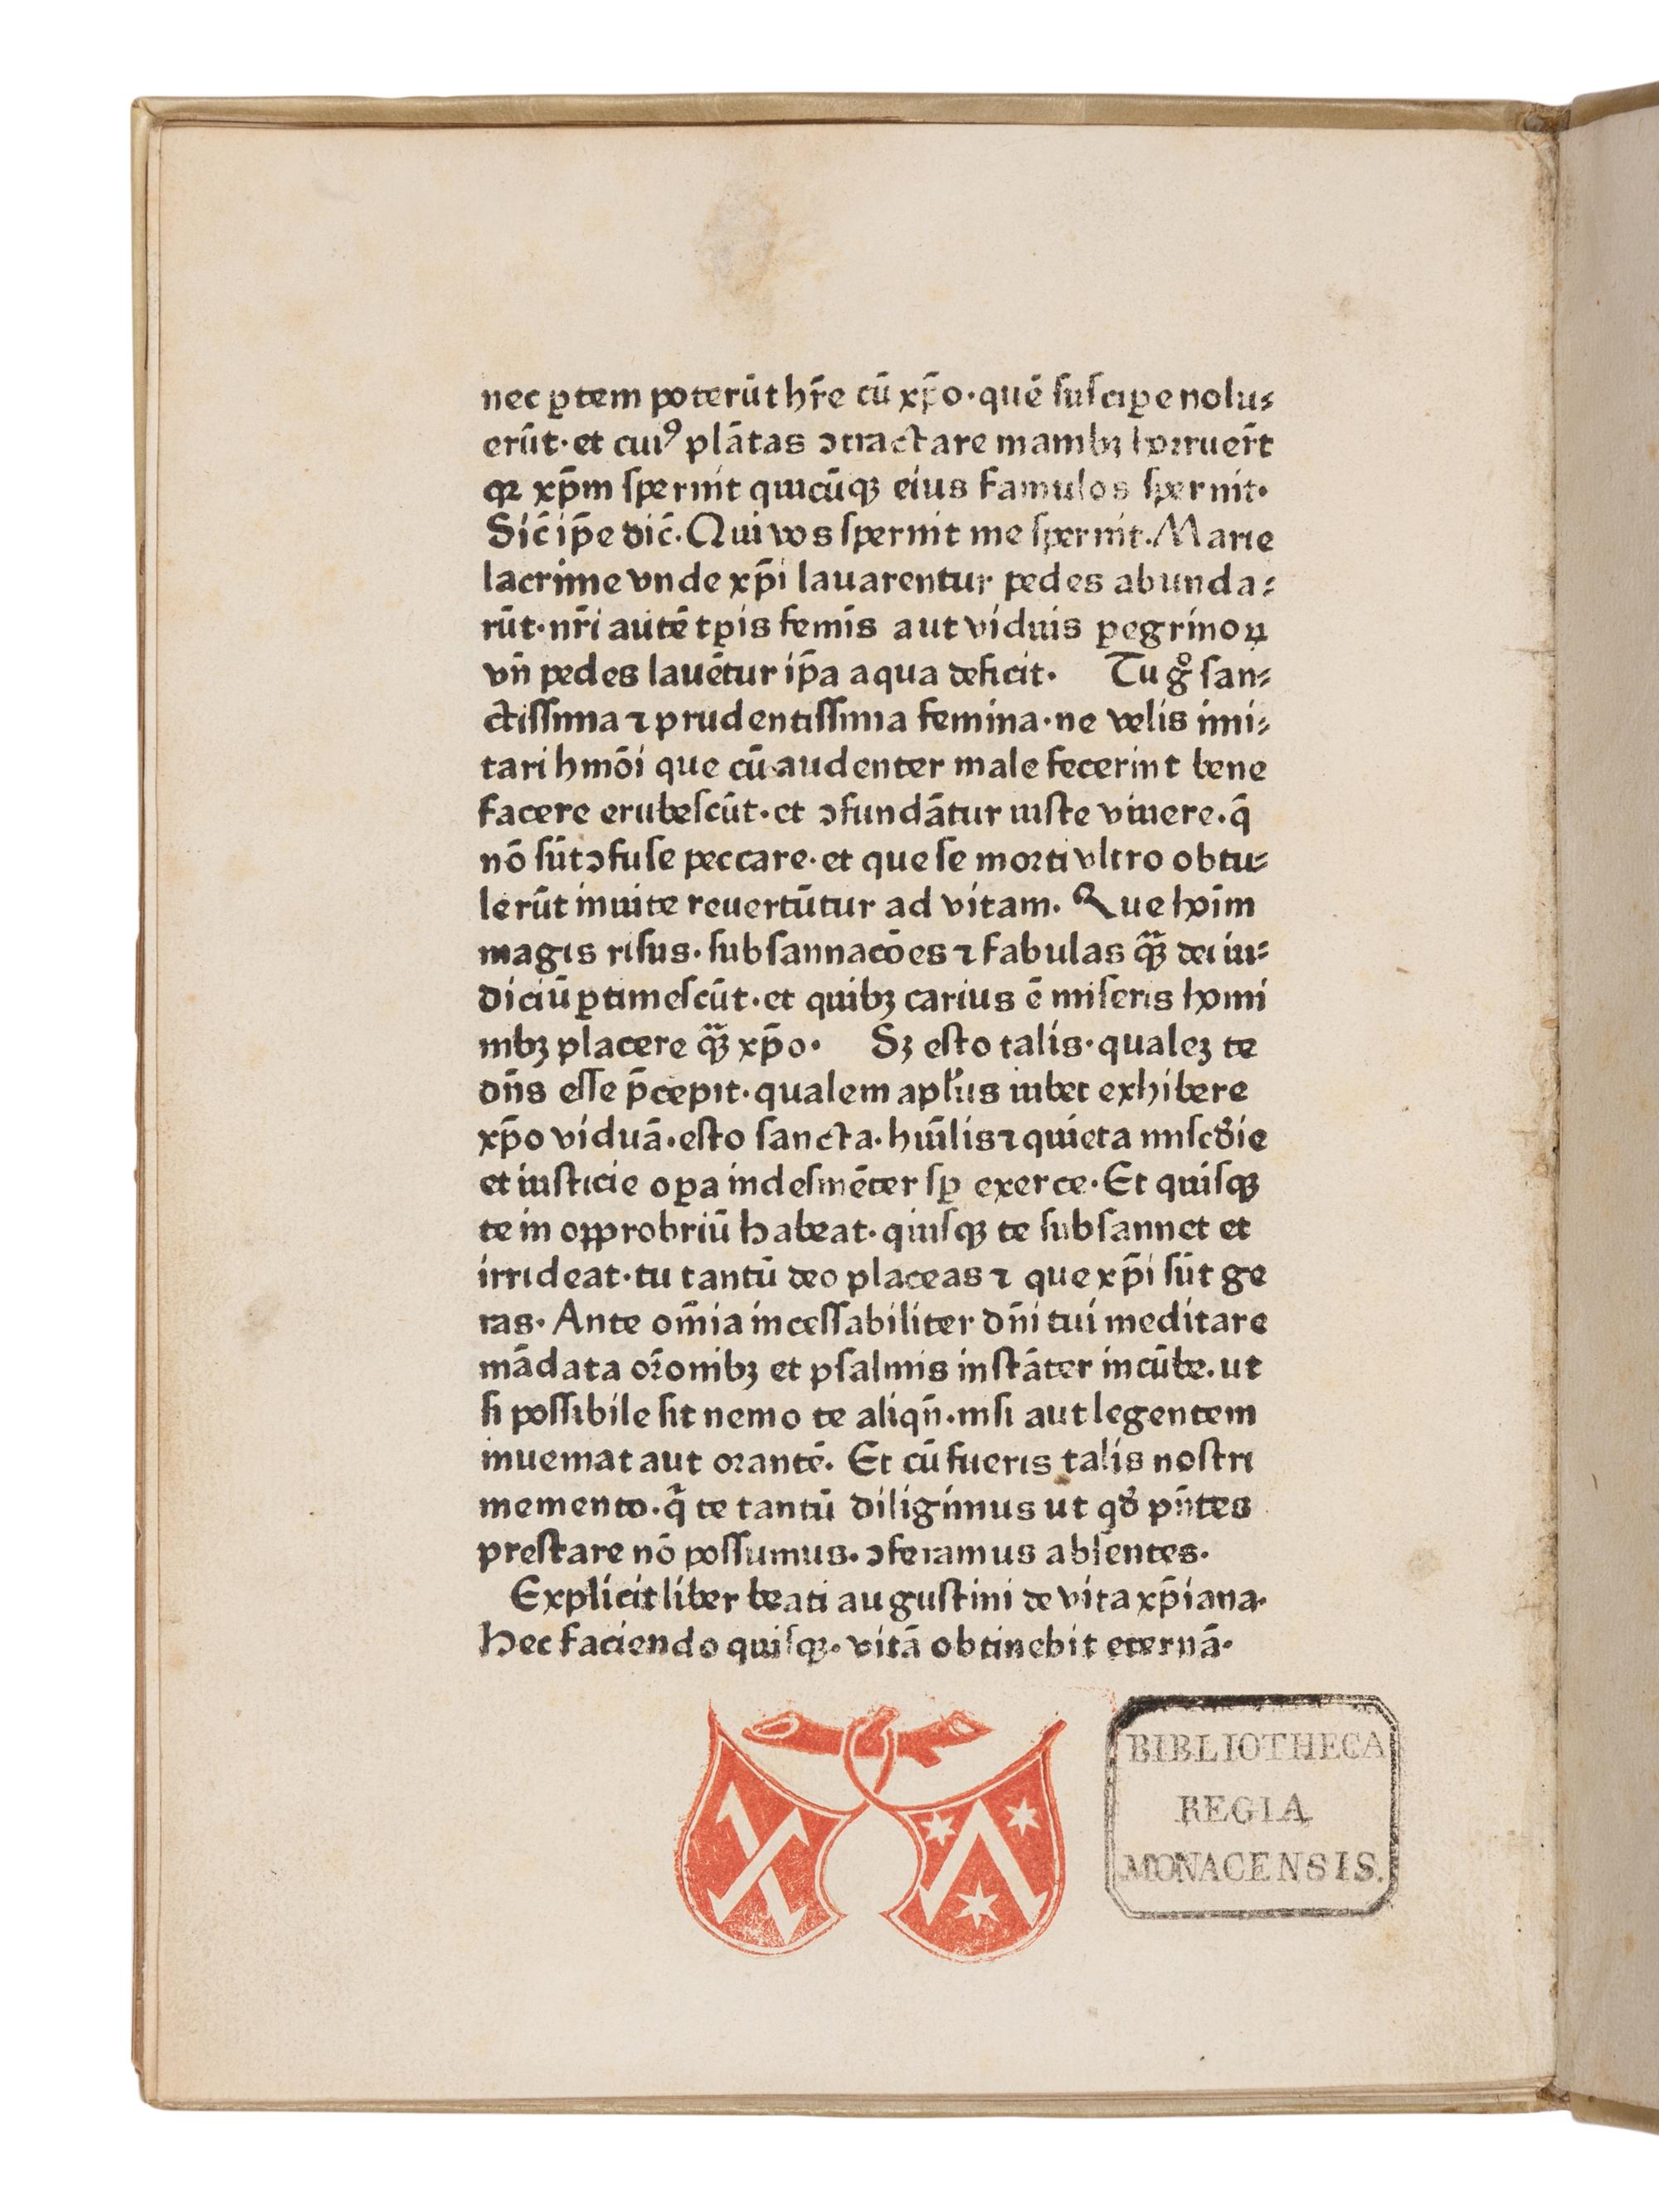 nec ꝑtem poterūt hr̄e cū xp̄o·quē ſuſciꝑe nolu⸗
erūt·et cui⁹ plātas ↄtractare manibꝫ horruer̄t
qꝛ xp̄m ſpernit quicūqꝫ eius famulos ſpernit·
Sic̄ ip̄e dic̄·Qui vos ſpernit me ſpernit·Marie
lacrime vnde xp̄i lauarentur pedes abunda⸗
rūt·nr̄i autē tꝑis femīs aut viduis ꝑegrinoꝝ
vn̄ pedes lauētur ip̄a aqua deficit· Tu gͦ ſan⸗
ctiſſima ⁊ prudentiſſima femina·ne velis imi⸗
tari hmōi que cū audenter male fecerint bene
facere erubeſcūt·et ↄfundātur iuſte viuere·q̄
nō ſūt ↄfuſe peccare·et que ſe morti vltro obtu⸗
lerūt inuite reuertūtur ad vitam· Que hoīm
magis riſus·ſubſannacōes ⁊ fabulas qᷓꝫ dei iu⸗
diciū ꝑtimeſcūt·et quibꝫ carius ē miſeris homi
nibꝫ placere qᷓꝫ xp̄o· Sꝫ eſto talis·qualeꝫ te
dn̄s eſſe p̄cepit·qualem apl̄us iubet exhibere
xp̄o viduā·eſto ſancta·hūilis ⁊ quieta miſcd̄ie
et iuſticie oꝑa indeſinēter ſꝑ exerce·Et quiſqꝫ
te in opprobriū habeat·quiſqꝫ te ſubſannet et
irrideat·tu tantū deo placeas ⁊ que xp̄i ſūt ge
ras·Ante om̄ia inceſſabiliter dn̄i tui meditare
mādata or̄onibꝫ et pſalmis inſtāter incūbe·ut
ſi poſſibile ſit nemo te aliqn̄·niſi aut legentem
inueniat aut orantē· Et cū fueris talis noſtri
memento·qᷓ te tantū diligimus ut qd̄ pn̄tes
preſtare nō poſſumus·ↄferamus abſentes·
Explicit liber beati auguſtini de vita xp̄iana·
Hec faciendo quiſqꝫ·vitā obtinebit eternā·
BIBLIOTHECA
REGIA
MONACENSIS.